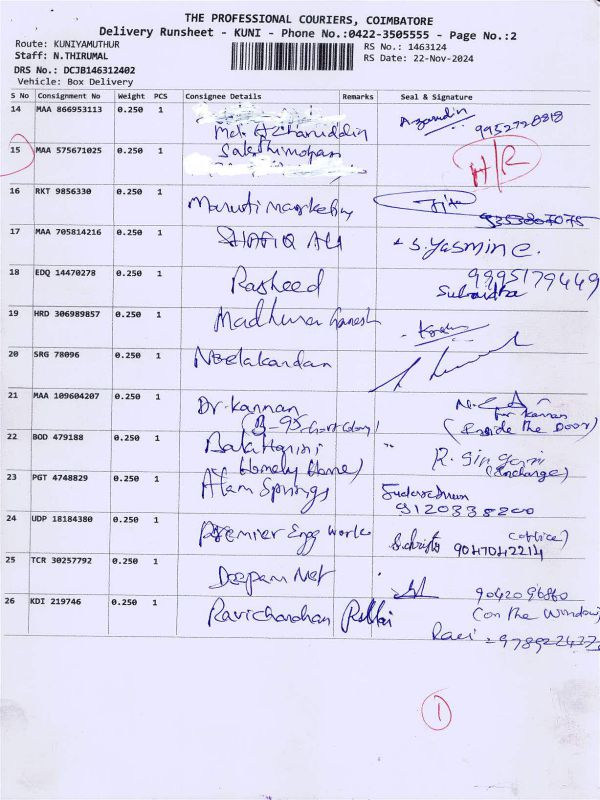 THE PROFESSIONAL COURIERS, COIMBATORE
Delivery Runsheet - KUNI - Phone No.:0422-3505555 - Page No.:2
Route: KUNIYAMUTHUR
RS No.: 1463124
Staff: N.THIRUMAL
RS Date: 22-Nov-2024
DRS No.: DCJB146312402
Vehicle: Box Delivery
S No Consignment No Weight PCS Consignee Details Remarks Seal & Signature
14 MAA 866953113 0.250 1 Azharuddin 9952728818
15 MAA 575671025 0.250 1 Sakthimohan H/R
16 RKT 9856330 0.250 1 Maruti Marketing 9353807075
17 MAA 705814216 0.250 1 SHAFIQ ALI S.Yasmine.
18 EDQ 14470278 0.250 1 Rasheed 9995179449
19 HRD 306989857 0.250 1 Madhura Ganesh
20 SRG 78096 0.250 1 Neelakandan
21 MAA 109604207 0.250 1 Dr. Kannan for Kannan
(B-95 Colony) (Inside the Door)
22 BOD 479188 0.250 1 (Incharge)
(Homely Home)
23 PGT 4748829 0.250 1 Alam Springs
9120338200
24 UDP 18184380 0.250 1 Premier Engg Works (office)
9047042214
25 TCR 30257792 0.250 1 Deepam Net
26 KDI 219746 0.250 1 Ravichandran
(on the Window)
Ravi
1